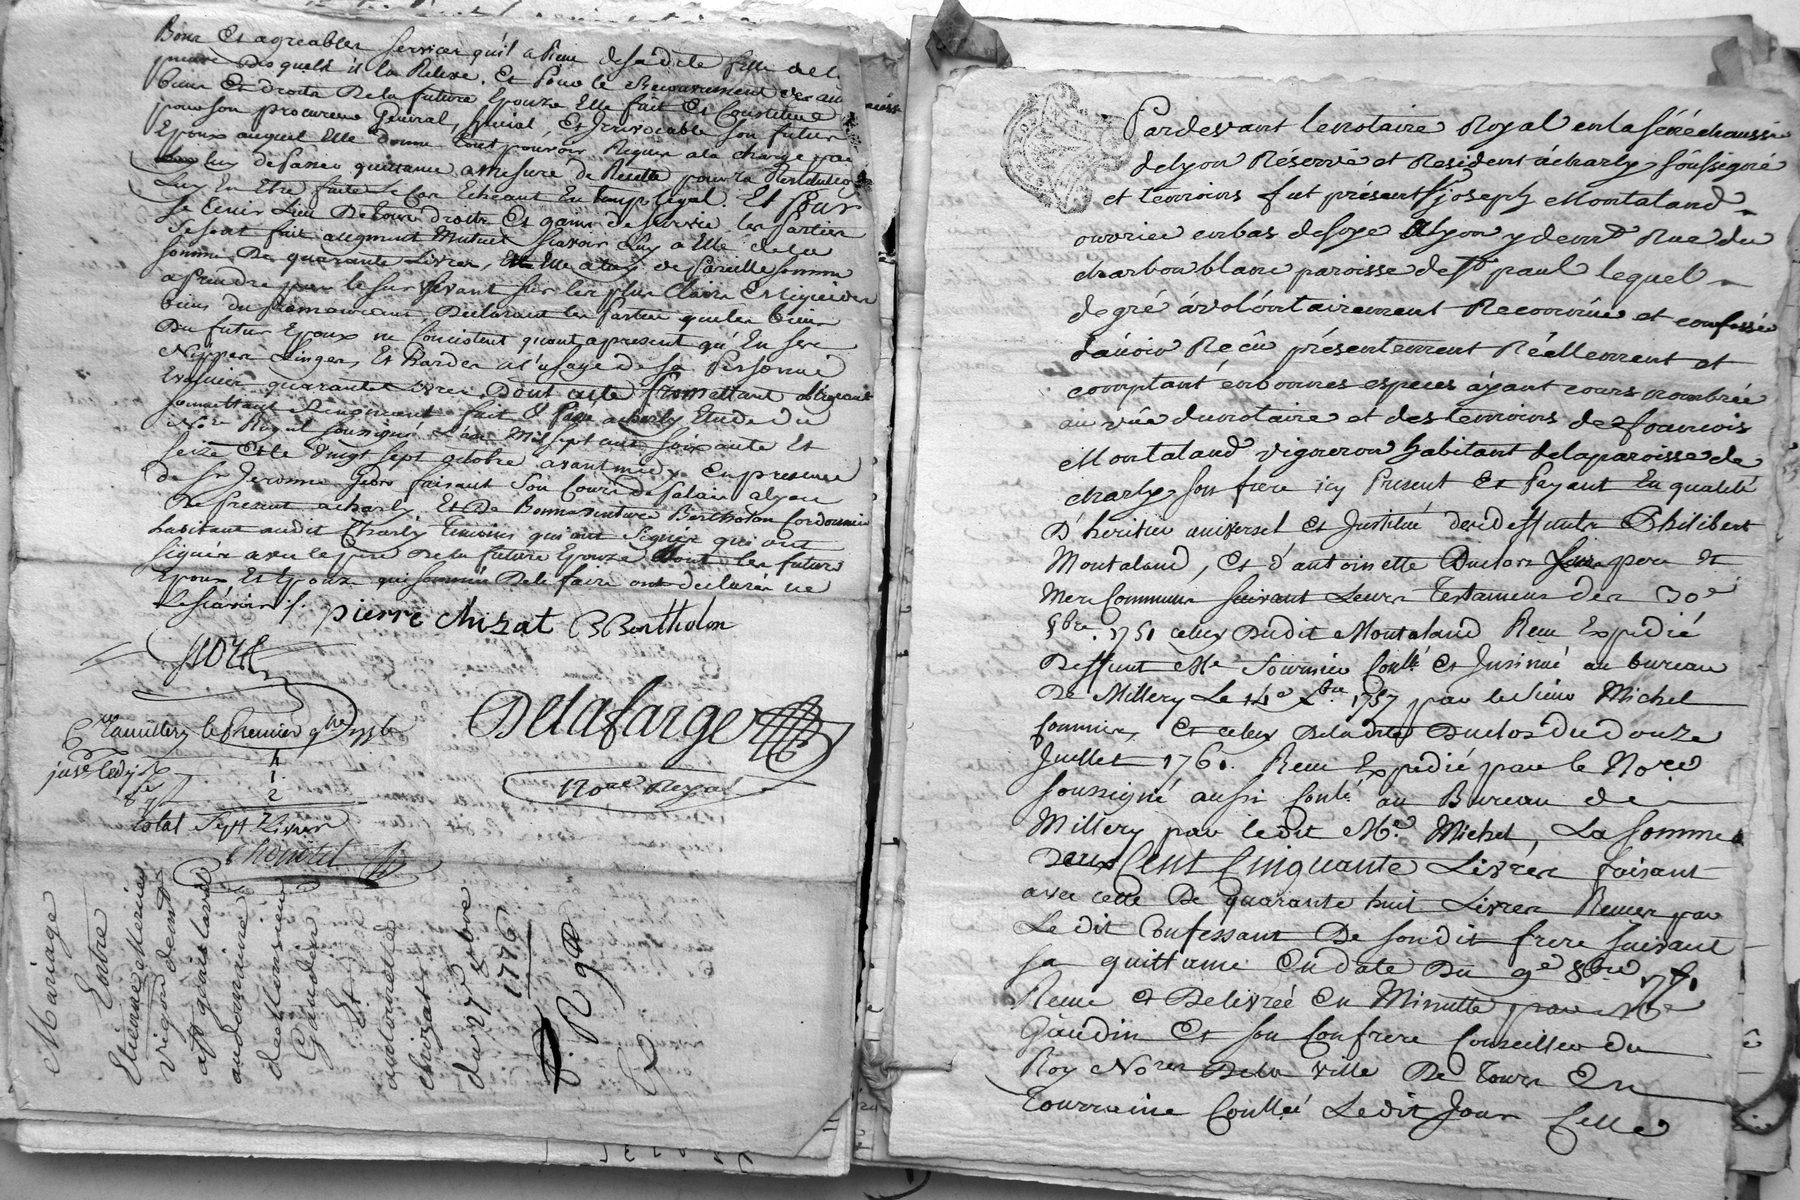 Bons et agreables services qu'il a
desquels il la Releve. Et Pour le Recouvrement des
biens et droits De la future Epouze Elle fait Et Constitue
pour son procureur General, special, Et Irrevocable son futur
Epoux auquel Elle donne tout pouvoir Requis a la charge par
luy de passer quittance a mesure de Recette pour la Restitution
Luy En Etre faite Le Cas Echeant En temps legal. Et pour
se tenir Lieu De tous droits Et gains de survie les parties
se sont fait augment Mutuel scavoir Luy a Elle de la
somme De quarante Livres, Et Elle a luy de Pareille somme
a Prendre pour le survivant sur les plus Clairs Et liquides
biens du premourant, Declarant les parties que les biens
Du futur Epoux ne Consistent quant apresent qu'En ses
Nippes Linges, Et hardes a l'usage de sa Personne
quarante Livres Dont acte promettant obligeant
soumettant Renonçant fait & Passé a charly Etude du
Nore Royal soussigné L'an Mil sept cent soixante Et
seize Et le vingt sept octobre avant midy En presence
de Sr Jerome faisant son Cours de palais a lyon
De present a charly, Et De Bonnaventure Bertholon Cordonnier
habitant audit Charly temoins qui ont
signés avec le pere De la future Epouze Dont les futurs
Epoux Et Epouze qui sommés De le faire ont declarés ne
Le scavoir ./.
pierre chizat BBertholon
Delafarge
Nore Royal
le premier 9bre 1776
4
1
2
total sept Livres
Mariage
Entre
Etienne
vigon demt
au domaine
des
Gaudin
Et
antoinette
chizat
du 27 8bre
1776
R
Pardevant le notaire Royal en la sénéchaussée
de lyon Réservé et Resident à charly soussigné
et temoins fut présent sr joseph Montaland
ouvrier en bas de soye a lyon y demt Rue du
charbon blanc paroisse de St paul lequel
de gré à volontairement Reconnu et confessé
d'avoir Reçû présentement Réellement et
comptant en bonnes especes ayant cours nombrée
au vûe du notaire et des temoins de françois
Montaland vigneron habitant de la paroisse de
charly son frere icy Present Et Payant En qualité
D'heritier universel Et Institué de deffunts Philibert
Montaland, Et d'antoinette Duclos pere Et
Mere Communs suivant Leurs Testamens des 30e
8bre 1751 celuy Dudit Montaland Reçu Expedié
Deffunt Me Fournier Conllé Et Insinué au bureau
De Millery Le 14e Xbre 1757 par le sieur Michel
Commis, Et celuy De ladite Duclos du douze
Juillet 1761. Reçu Expedié par le Nore
soussigné aussi Conllé au Bureau de
Millery par ledit Me Michel, La somme
Deux Cent Cinquante Livres faisant
avec celle De quarante huit Livres Remis par
Le dit Confessant De sondit frere suivant
sa quittance En date Du 9e 8bre
Reçue Et Delivrée En Minutte par Me
Gaudin Et son Confrere Conseiller du
Roy Nores De la ville De Tours En
Tourraine Conllée Ledit Jour Celle